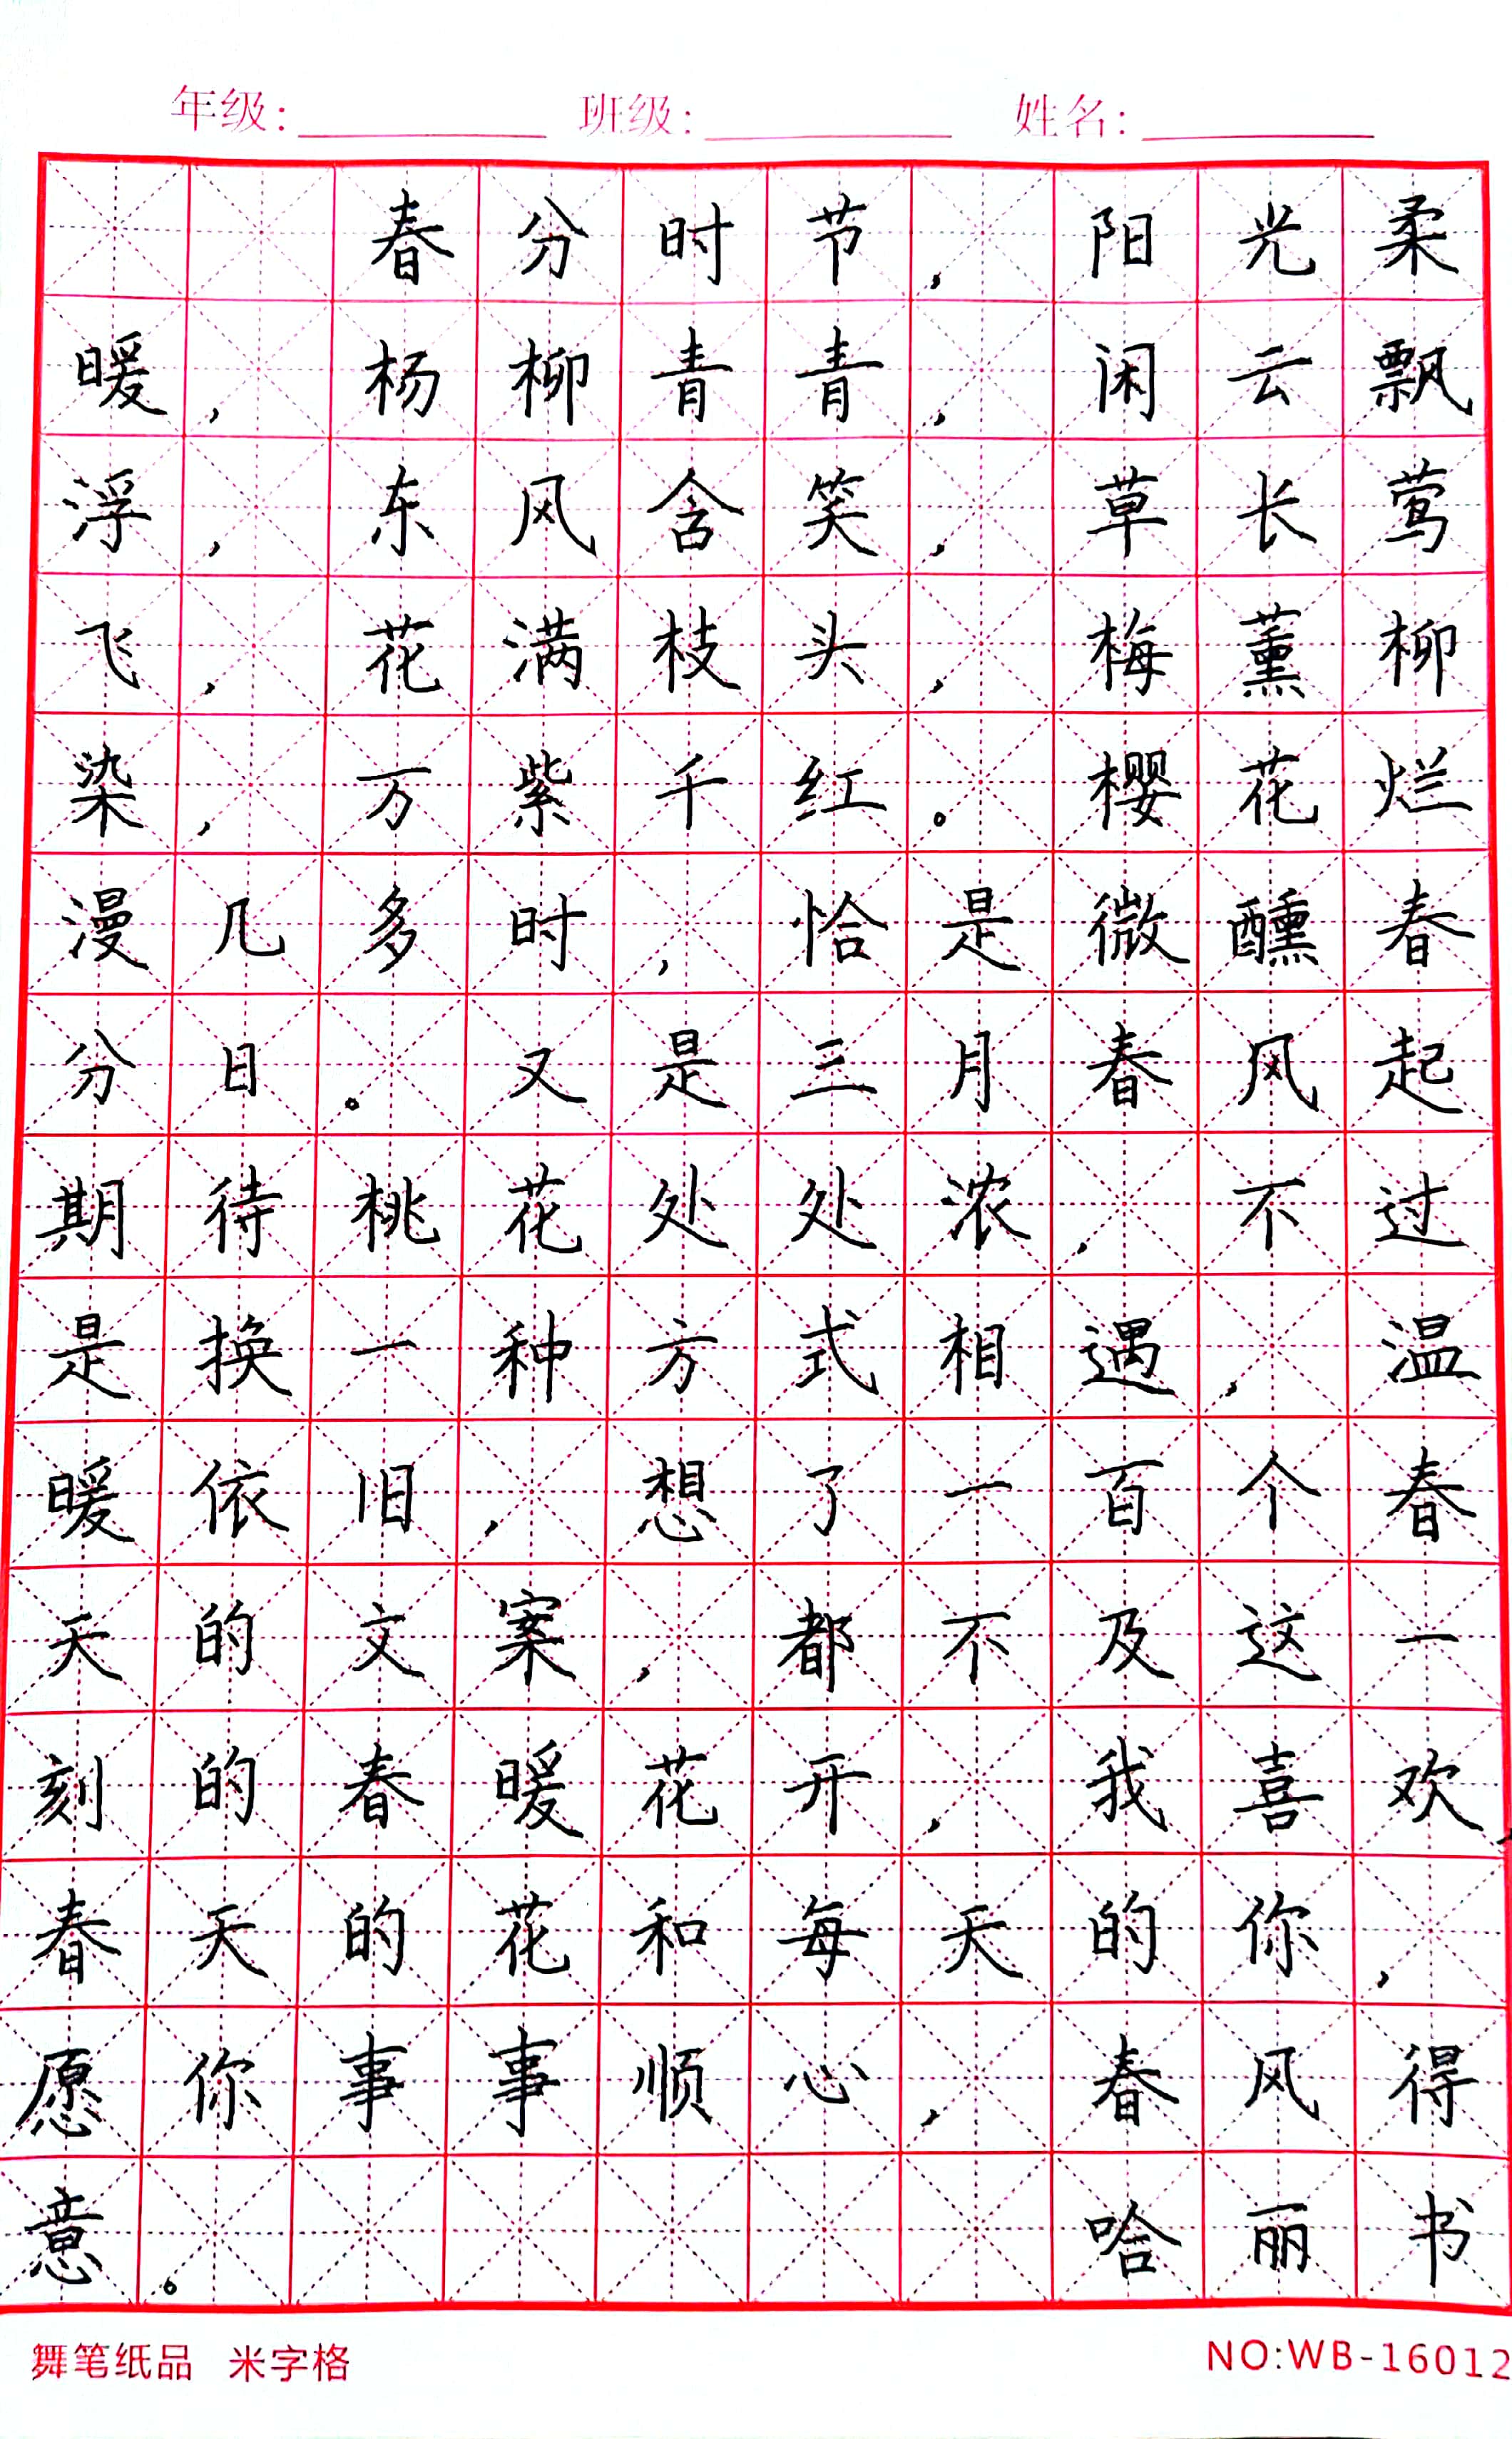 年级： 班级： 姓名：
春分时节，阳光柔
暖，杨柳青青，闲云飘
浮，东风含笑，草长莺
飞，花满枝头，梅薰柳
染，万紫千红。樱花烂
漫几多时，恰是微醺春
分日。又是三月春风起
期待桃花处处浓，不过
是换一种方式相遇，温
暖依旧，想了一百个春
天的文案，都不及这一
刻的春暖花开，我喜欢
春天的花和每天的你，
愿你事事顺心，春风得
意。 哈丽书
舞笔纸品 米字格 NO:WB-16012